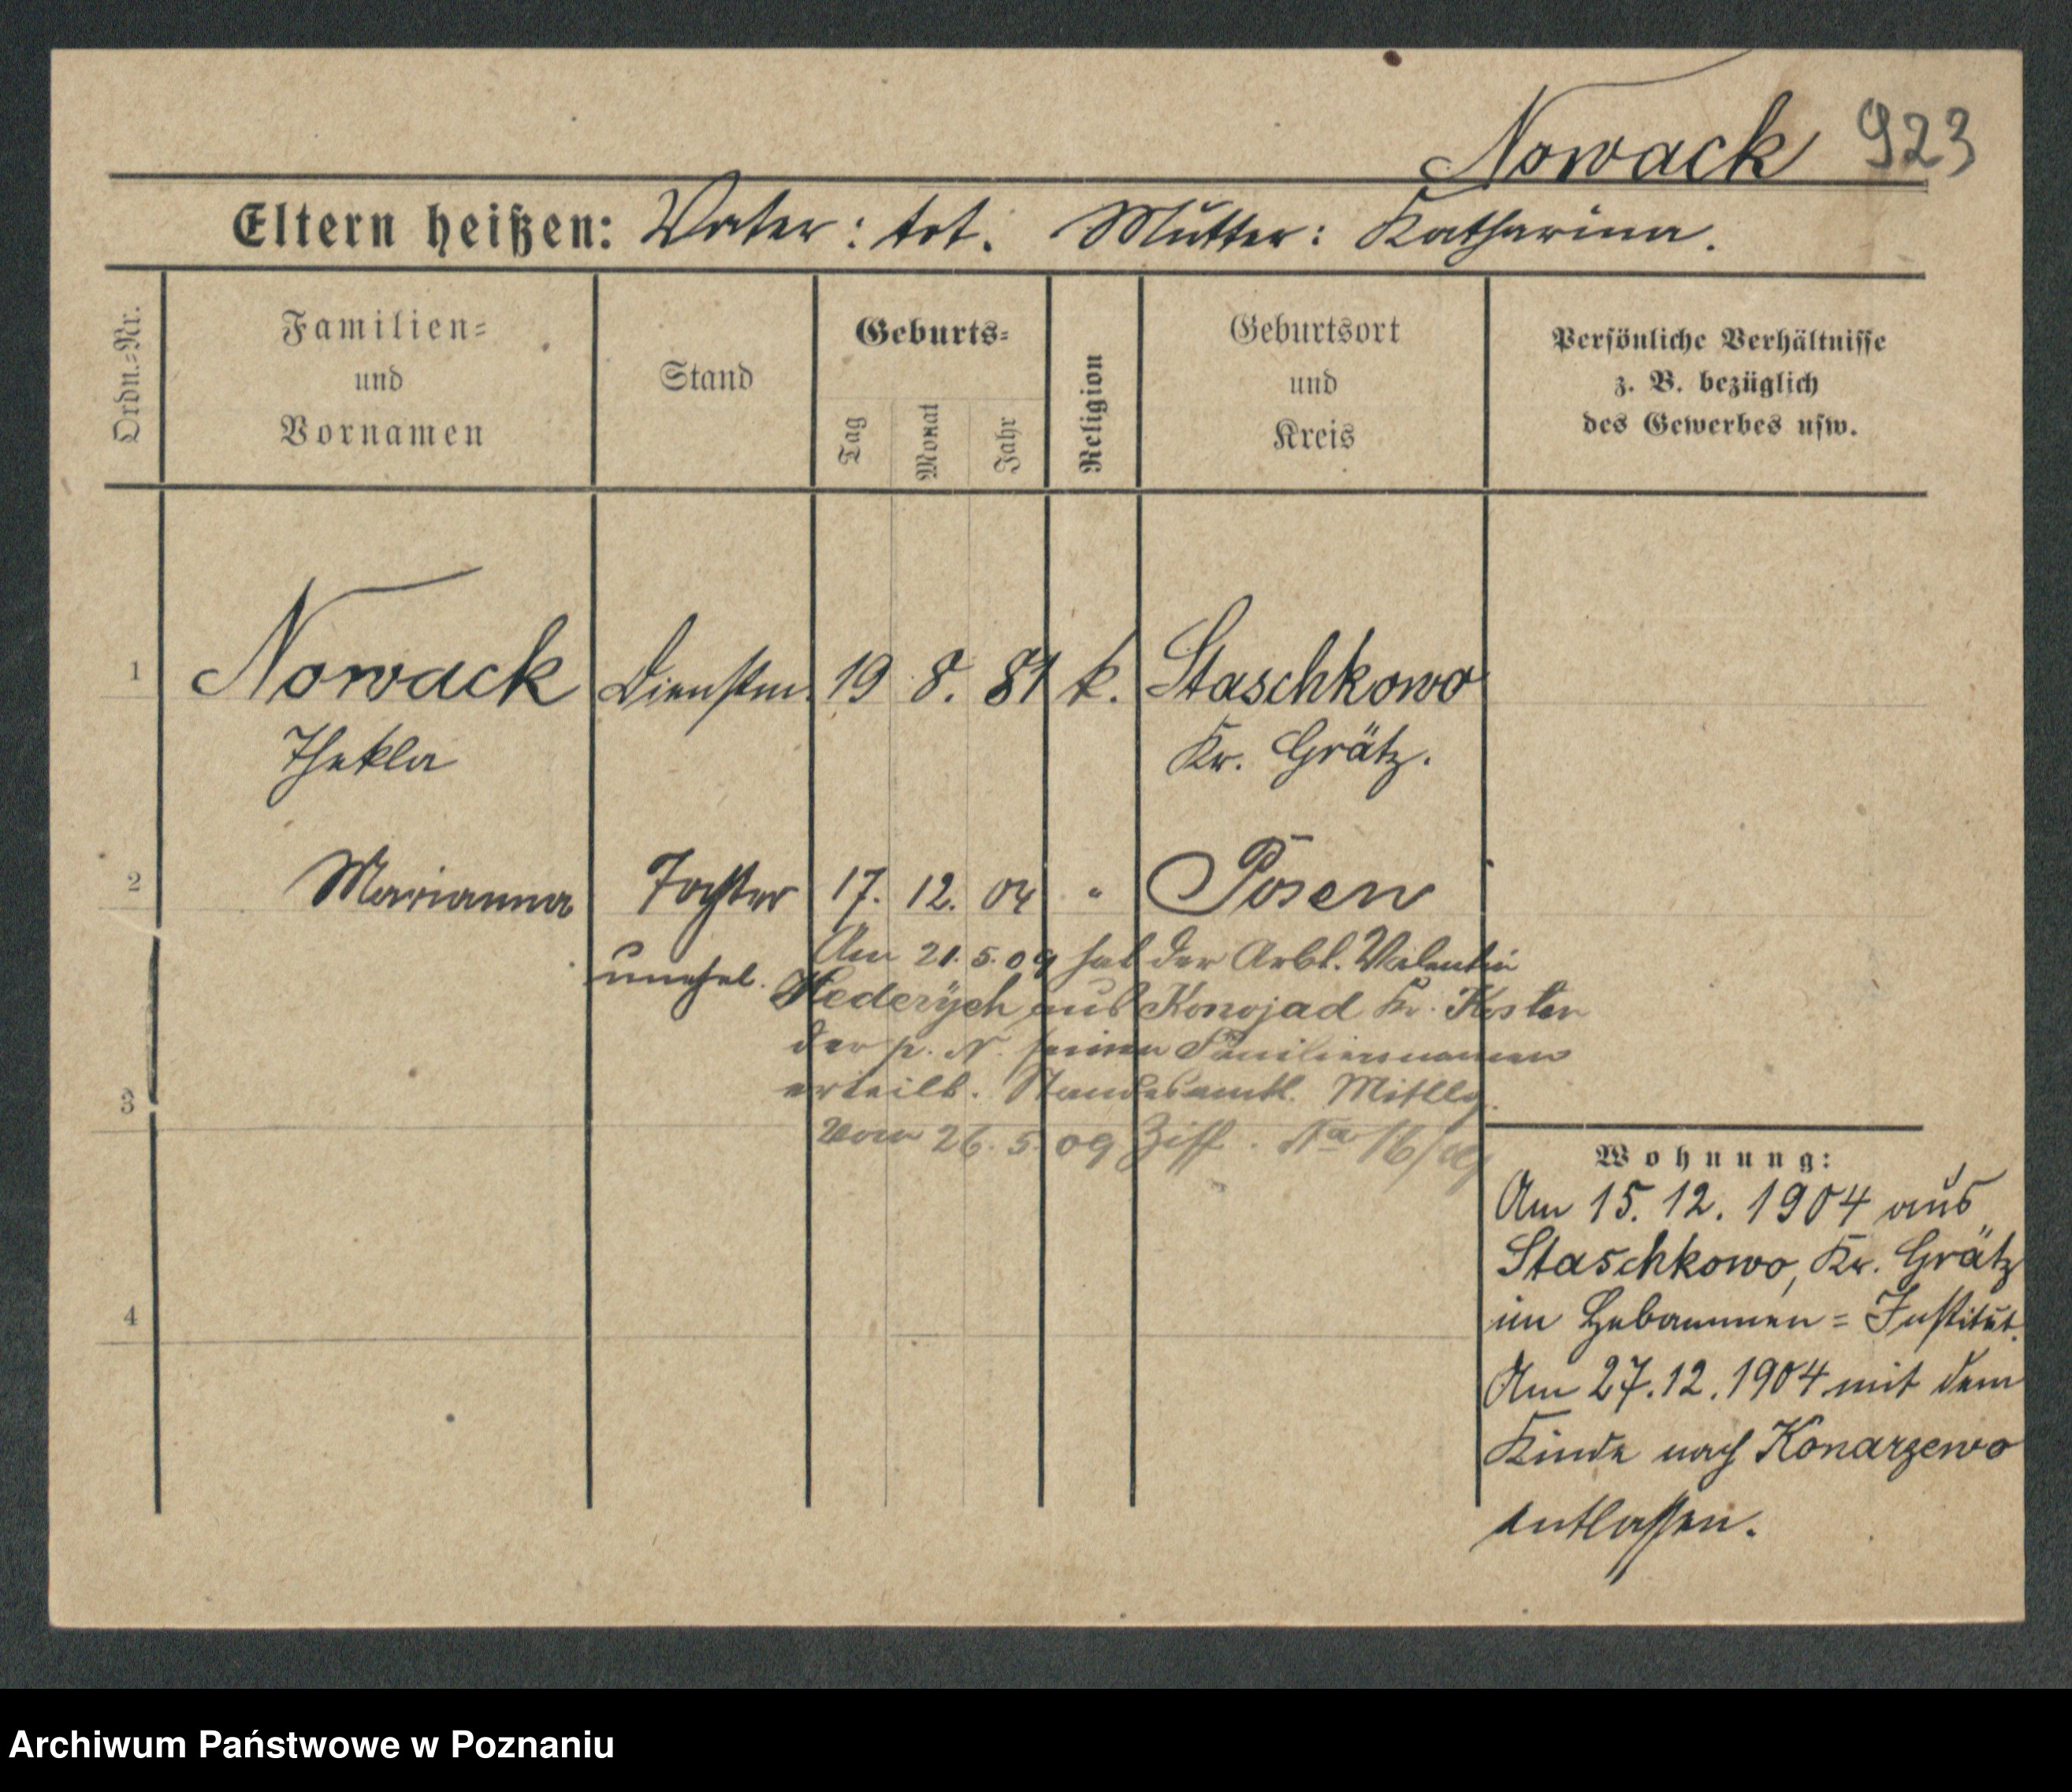 Nowack 923
Eltern heißen: Vater: tot. Mutter: Katharina.
Ordn.=Nr.
Familien=
und
Vornamen
Stand
Geburts=
Tag
Monat
Jahr
Religion
Geburtsort
und
Kreis
Persönliche Verhältnisse
z. B. bezüglich
des Gewerbes usw.
1 Nowack Dienstm. 19 8. 81 k. Staschkowo
Thekla Kr. Grätz.
2 Marianna Tochter 17. 12. 04 " Posen
unehel.
Am 21. 5. 09 hat der Arbt. Valentin
aus Konojad Kr. Kosten
der p. N. seinen Familiennamen
erteilt. Standesamtl. Mittlg.
3
vom 26. 5. 09 Ziff. 16/09
Wohnung:
Am 15. 12. 1904 aus
Staschkowo, Kr. Grätz
im Hebammen=Institut.
4
Am 27. 12. 1904 mit dem
Kinde nach Konarzewo
entlassen.
Archiwum Państwowe w Poznaniu